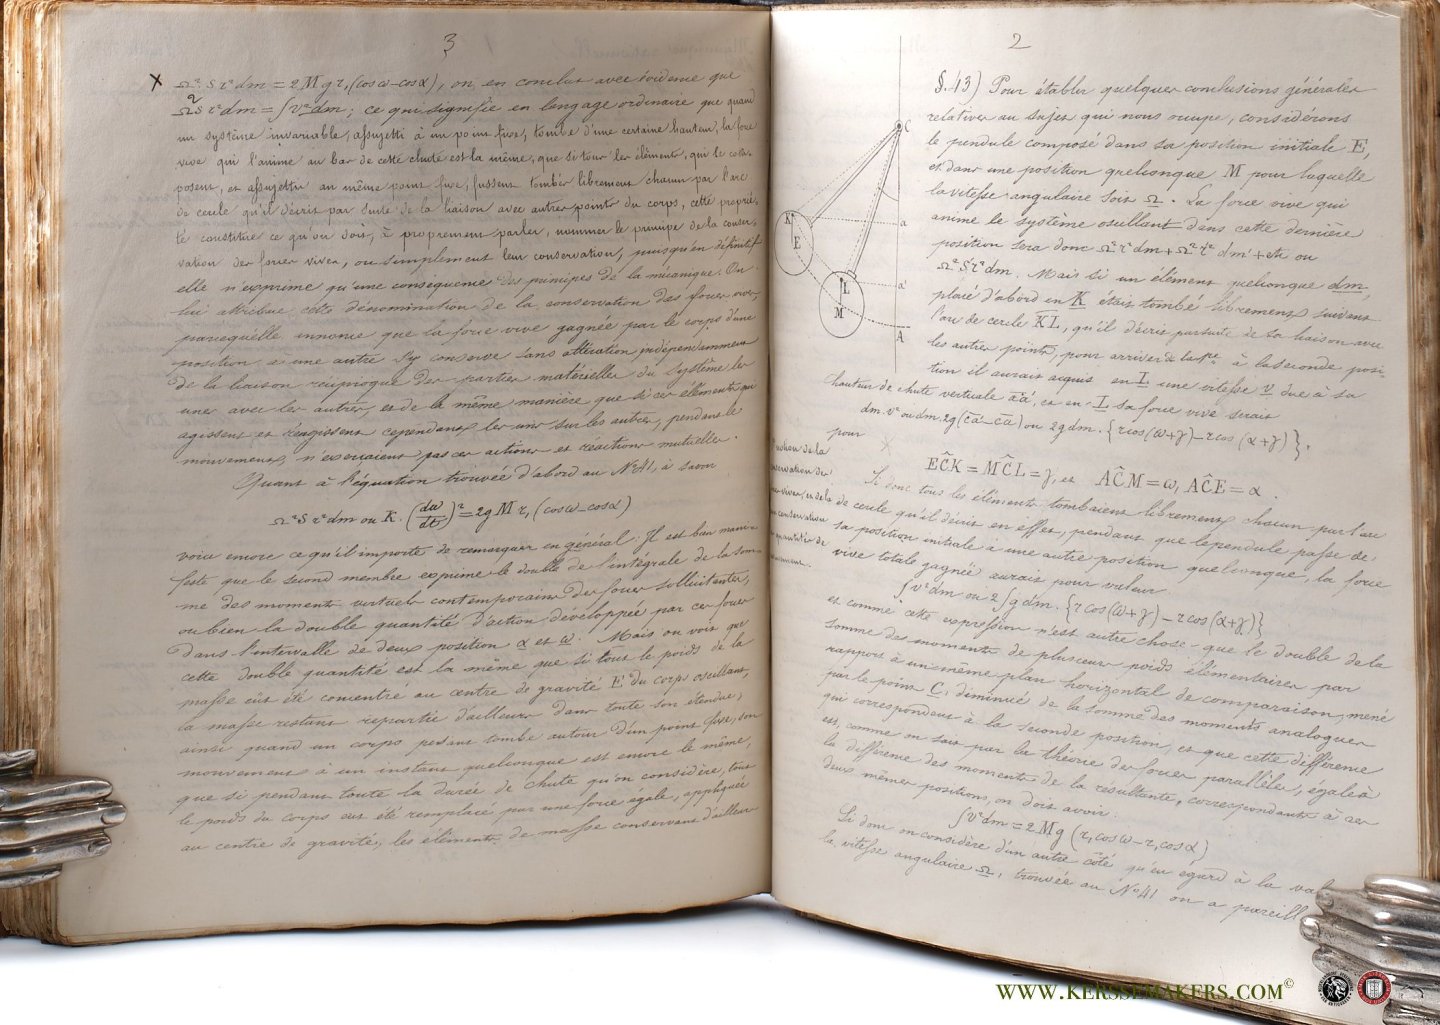 3
x Ω² S r² dm = 2 M g r, (cos ω – cos α), on en conclut avec évidence que
Ω² S r² dm = ∫v² dm; ce qui signifie en langage ordinaire que quand
un système invariable, assujetti à un point fixe, tombe d'une certaine hauteur, la force
vive qui l'anime au bas de cette chute est la même, que si tous les éléments, qui le com-
posent, et assujettis au même point fixe, fussent tombés librement chacun par l'arc
de cercle qu'il décrit par suite de la liaison avec autres points du corps, cette proprié-
té constitue ce qu'on doit, à proprement parler, nommer le principe de la conser-
vation des forces vives, ou simplement leur conservation, puisqu'en définitif
elle n'exprime qu'une conséquence des principes de la mécanique. On
lui attribue cette dénomination de la conservation des forces vives,
parcequ'elle énonce que la force vive gagnée par le corps d'une
position à une autre s'y conserve sans altération indépendamment
de la liaison réciproque des parties matérielles du système les
unes avec les autres, et de la même manière que si ces éléments qui
agissent et réagissent cependant les uns sur les autres, pendant le
mouvement, n'exerçaient pas ces actions et réactions mutuelles.
Quant à l'équation trouvée d'abord au N° 41, à savoir
Ω² S r² dm ou K. (dω/dt)² = 2 g M r, (cos ω – cos α)
voici encore ce qu'il importe de remarquer en général: Il est bien mani-
feste que le second membre exprime le double de l'intégrale de la som-
me des moments virtuels contemporains des forces sollicitantes,
ou bien la double quantité d'action développée par ces forces
dans l'intervalle de deux position α et ω. Mais on voit que
cette double quantité est la même que si tout le poids de la
masse eût été concentré au centre de gravité E du corps oscillant,
la masse restant répartie d'ailleurs dans toute son étendue;
ainsi quand un corps pesant tombe autour d'un point fixe, son
mouvement à un instant quelconque est encore le même,
que si pendant toute la durée de chute qu'on considère, tout
le poids du corps eut été remplacé par une force égale, appliquée
au centre de gravité, les éléments de masse conservant d'ailleurs
2
C
K
E
a
L
a'
M
A
§.43) Pour établir quelques conclusions générales
relatives au sujet qui nous occupe, considérons
le pendule composé dans sa position initiale E,
et dans une position quelconque M pour laquelle
la vitesse angulaire soit Ω. La force vive qui
anime le système oscillant dans cette dernière
position sera donc Ω² r² dm + Ω² r'² dm' + etc. ou
Ω² S r² dm. Mais si un élément quelconque dm,
placé d'abord en K était tombé librement suivant
l'arc de cercle KL, qu'il décrit par suite de sa liaison avec
les autres points, pour arriver de la 1re à la seconde posi-
tion il aurait acquis en L une vitesse v due à sa
hauteur de chute verticale aa', et en L sa force vive serait
dm. v² ou dm 2g (ca' – ca) ou 2g dm. {r cos (ω+γ) – r cos (α+γ)}.
pour
ECK = MCL = γ, et ACM = ω, ACE = α.
Si donc tous les éléments tombaient librement chacun par l'arc
de cercle qu'il décrit en effet, pendant que le pendule passe de
sa position initiale à une autre position quelconque, la force
vive totale gagnée aurait pour valeur
∫v² dm ou 2∫g dm. {r cos (ω+γ) – r cos (α+γ)}
et comme cette expression n'est autre chose que le double de la
somme des moments de plusieurs poids élémentaires par
rapport à un même plan horizontal de comparaison, mené
par le point C, diminuée de la somme des moments analogues
qui correspondent à la seconde position, et que cette différence
est, comme on sait par la théorie des forces parallèles, égale à
la différence des moments de la résultante, correspondants à ces
deux mêmes positions, on doit avoir:
∫v² dm = 2 M g (r, cos ω – r, cos α)
Si donc on considère d'un autre côté qu'eu égard à la val
la vitesse angulaire Ω, trouvée au N° 41 on a pareill
WWW.KERSSEMAKERS.COM©